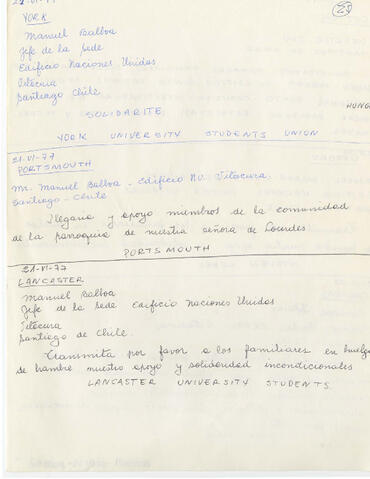 21-VI-77
25
YORK
Manuel Balboa
Jefe de la Sede
Edificio Naciones Unidas
Vitacura
Santiago Chile
HUNG
SOLIDARITE
YORK UNIVERSITY STUDENTS UNION
21-VI-77
PORTSMOUTH
Mr. Manuel Balboa - Edificio NU. Vitacura.
Santiago - Chile
llegana y apoyo miembros de la comunidad
de la parroquia de nuestra señora de Lourdes
PORTSMOUTH
21-VI-77
LANCASTER
Manuel Balboa
Jefe de la Sede Edificio Naciones Unidas
Vitacura
Santiago de Chile.
Transmita por favor a los familiares en huelga
de hambre nuestro apoyo y solidaridad incondicionales
LANCASTER UNIVERSITY STUDENTS